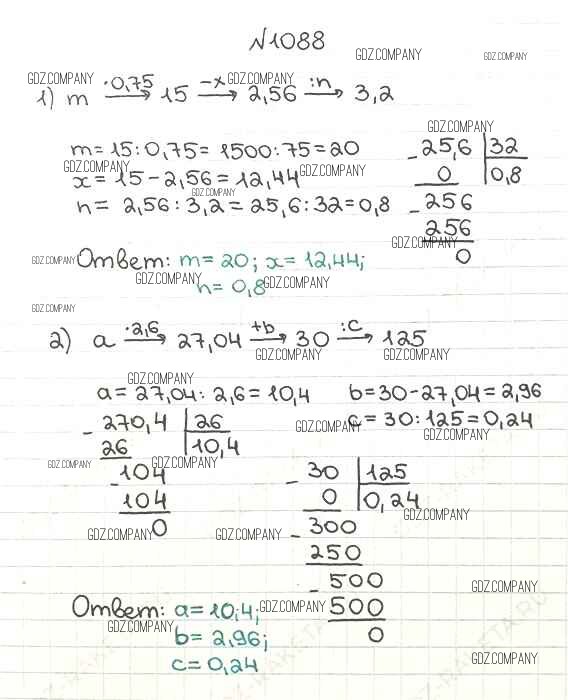 N1088
GDZ.COMPANY GDZ.COMPANY
GDZ.COMPANY GDZ.COMPANY
1) m ·0,75 → 15 -x → 2,56 :n → 3,2
GDZ.COMPANY
m = 15 : 0,75 = 1500 : 75 = 20
GDZ.COMPANY GDZ.COMPANY
x = 15 - 2,56 = 12,44
GDZ.COMPANY
n = 2,56 : 3,2 = 25,6 : 32 = 0,8
- 25,6 | 32
0 | 0,8
- 256
256
GDZ.COMPANY
0
GDZ.COMPANY
Ответ: m = 20; x = 12,44;
GDZ.COMPANY GDZ.COMPANY
n = 0,8
GDZ.COMPANY
2) a ·2,6 → 27,04 +b → 30 :c → 125
GDZ.COMPANY GDZ.COMPANY
GDZ.COMPANY
a = 27,04 : 2,6 = 10,4 b = 30 - 27,04 = 2,96
GDZ.COMPANY
c = 30 : 125 = 0,24
GDZ.COMPANY
- 270,4 | 26
26 | 10,4
GDZ.COMPANY GDZ.COMPANY
- 104
104
GDZ.COMPANY
0
- 30 | 125
0 | 0,24
GDZ.COMPANY
GDZ.COMPANY
- 300
250
- 500
500
0
GDZ.COMPANY
Ответ: a = 10,4;
GDZ.COMPANY
GDZ.COMPANY
b = 2,96;
c = 0,24
GDZ.COMPANY